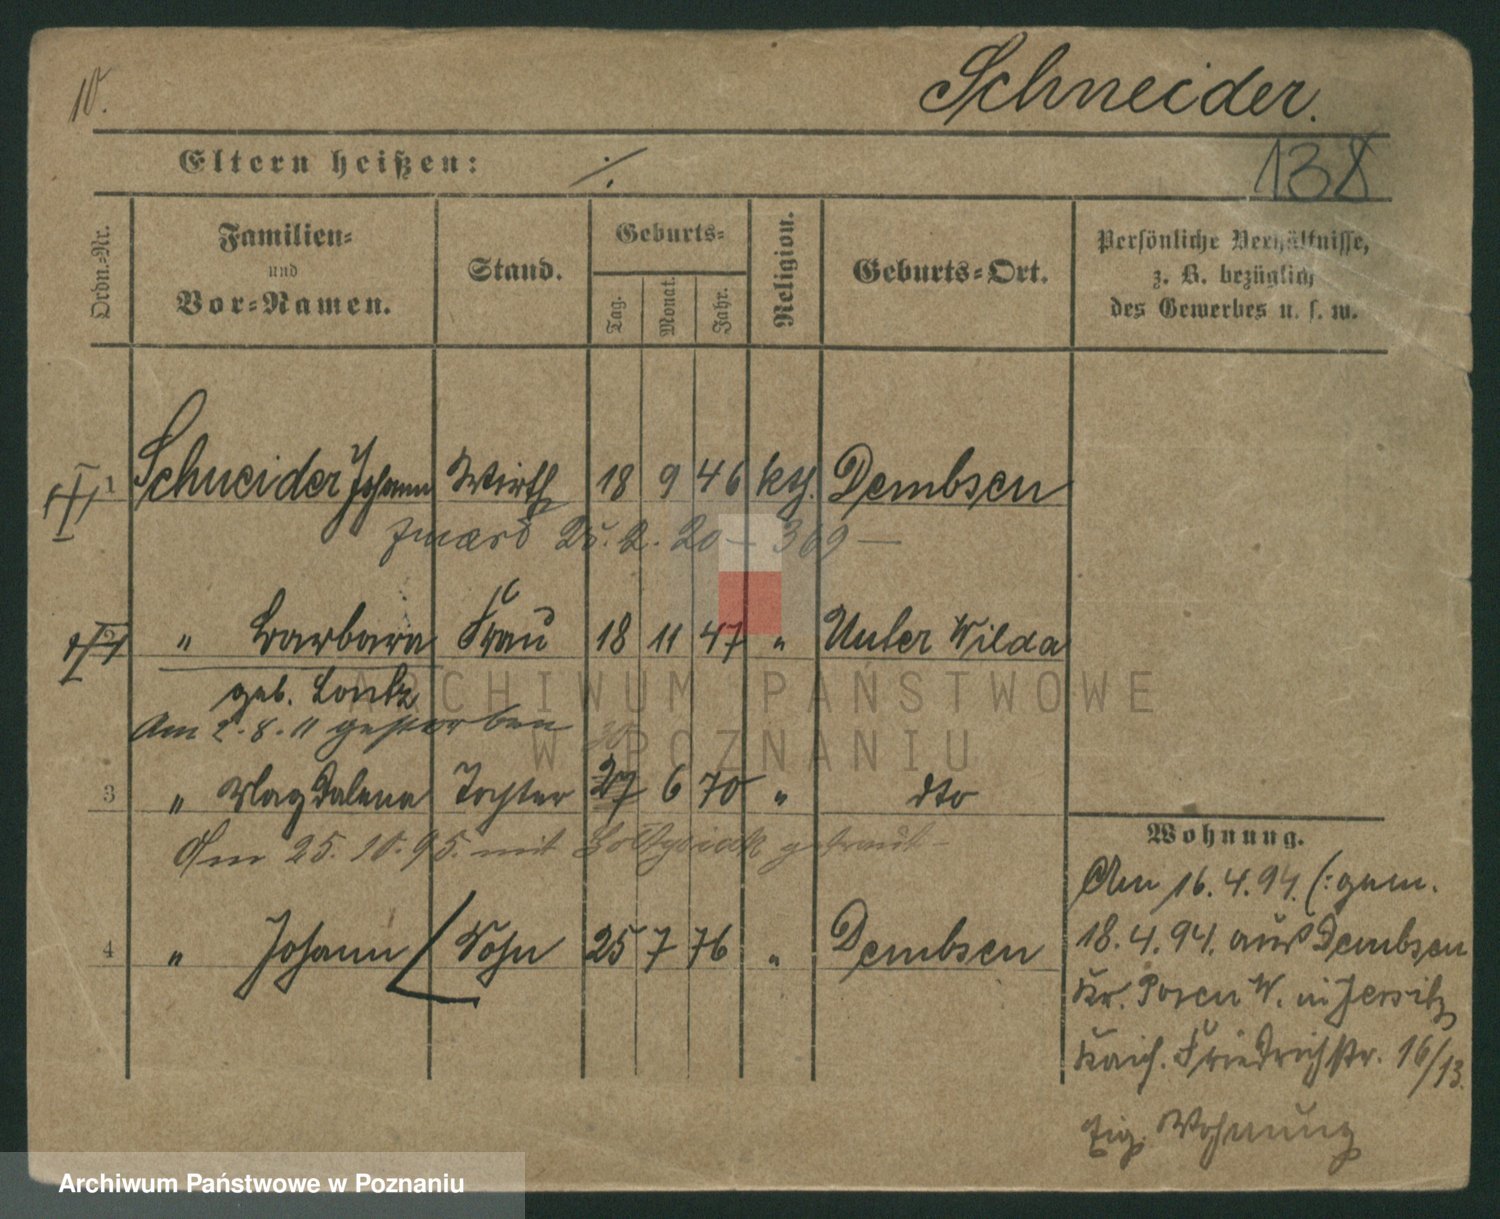 10.
Schneider.
138
Eltern heißen: ./.
Ordn.-Nr.
Familien-
und
Vor-Namen.
Stand.
Geburts-
Tag.
Monat.
Jahr.
Religion.
Geburts-Ort.
Persönliche Verhältnisse,
z. B. bezüglich
des Gewerbes u. s. w.
1 Schneider Johann Wirth 18 9 46 kth. Dembsen
25. 2. 20 — 369 —
2 " Barbara Frau 18 11 47 " Unter Wilda
geb. Lontz
Am 2. 8. 11 gestorben
3 " Magdalena Tochter 27 6 70 " dto
Am 25. 10. 95. mit getraut -
4 " Johann Sohn 25 7 76 " Dembsen
Wohnung.
Am 16. 4. 94. (: gem.
18. 4. 94. aus Dembsen
Kr. Posen W. in Jersitz
Kais. Friedrichstr. 16/13.
Eig. Wohnung
ARCHIWUM PAŃSTWOWE
W POZNANIU
Archiwum Państwowe w Poznaniu